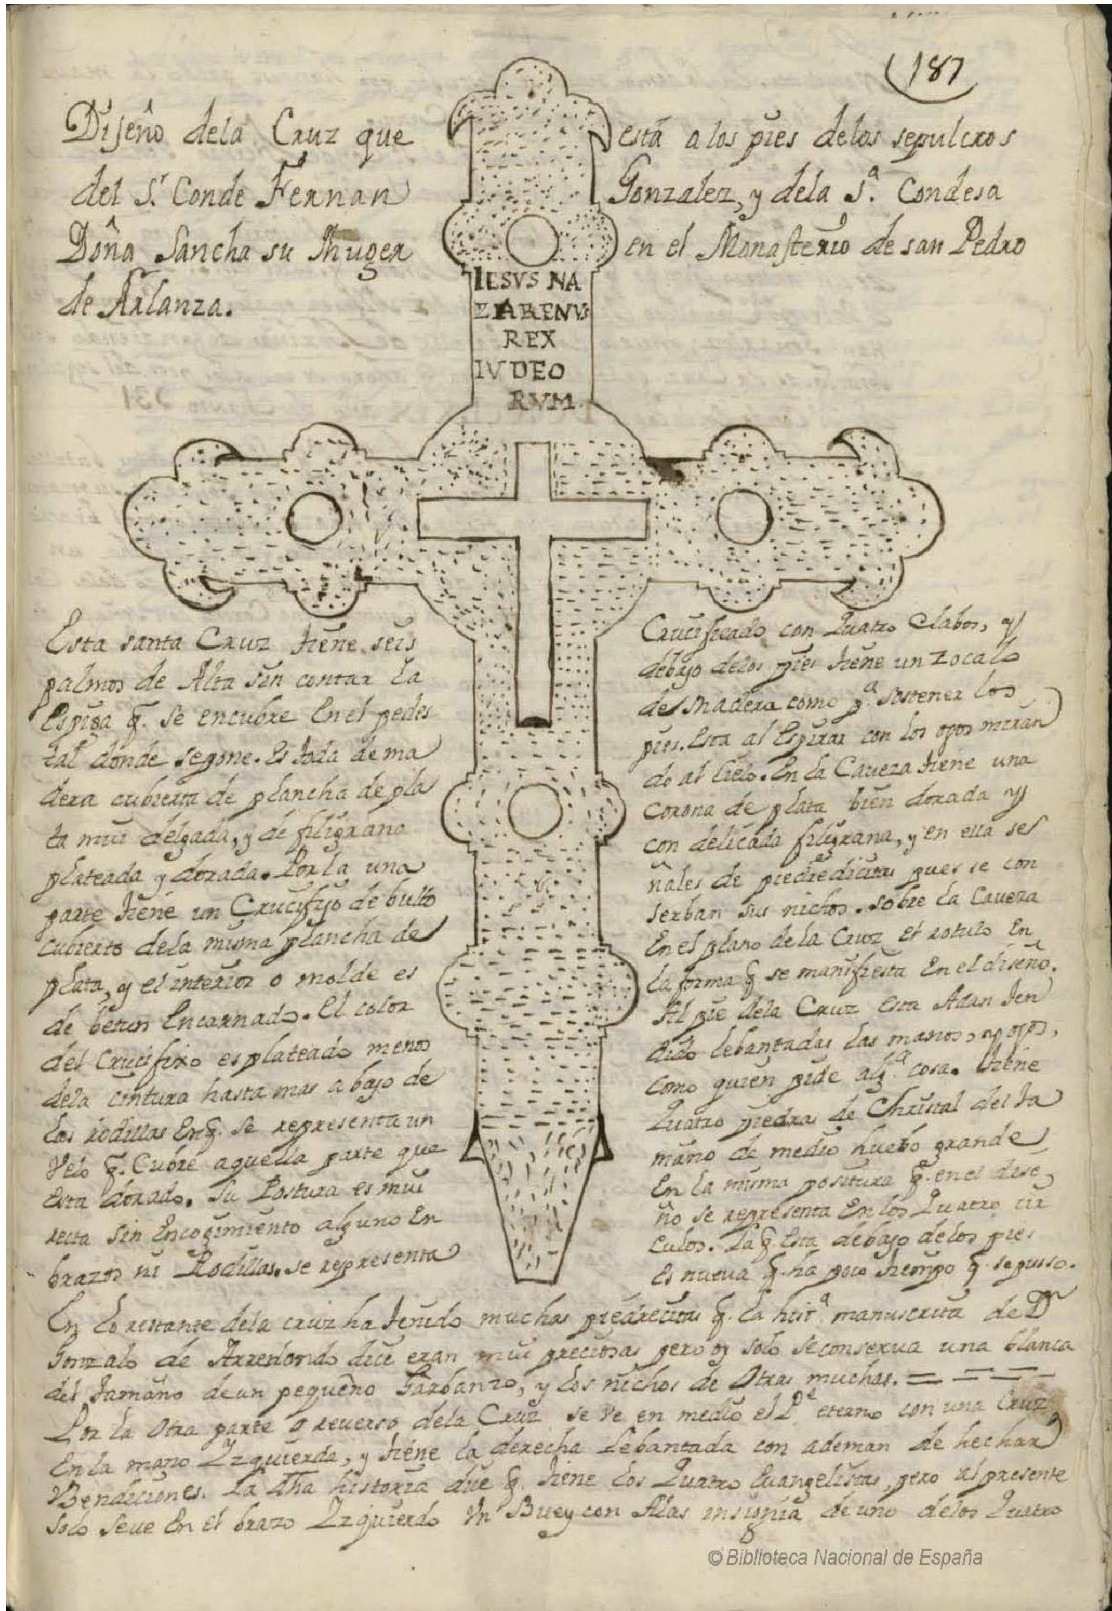 (187
Diseño dela Cruz que está a los pies delos sepulcros
del S.r Conde Fernan Gonzalez, y dela S.a Condesa
Doña Sancha su Muger en el Monasterio de san Pedro
de Arlanza.
IESVS NA
ZARENVS
REX
IVDEO
RVM.
Esta santa Cruz tiene seis
palmos de Alta sin contar la
Espiga q. se encubre En el pedes
tal donde se pone. Es toda de ma
dera cubierta de plancha de pla
ta mui delgada, y de filigrana
plateada y dorada. Por la una
parte tiene un Crucifijo de bulto
cubierto dela misma plancha de
plata, y el interior o molde es
de betun Encarnado. El color
del Crucifixo es plateado menos
dela cintura hasta mas abajo de
las rodillas En q. se representa un
Velo q. Cubre aquella parte que
esta dorado. Su Postura es mui
recta sin Encogimiento alguno En
brazos ni Rodillas. se representa
Crucificado con Quatro Clabos, y
debajo delos pies tiene un zocalo
de Madera como p.a sostener los
pies. Esta al Espirar con los ojos miran
do al Cielo. En la Caveza tiene una
corona de plata bien dorada y
con delicada filigrana, y en ella se
ñales de piedrecitas pues se con
serban sus nichos. sobre la Caveza
En el plano de la Cruz el rotulo En
la forma q. se manifiesta En el diseño.
Al pie dela Cruz esta Adan ten
dido lebantadas las manos, y ojos,
como quien pide alg.a cosa. tiene
Quatro piedras de Christal del ta
maño de medio huebo grande
En la misma positura q. en el dise
ño se representa En los Quatro cir
culos. la q. Esta debajo delos pies
es nueva q. ha poco tiempo q. se pusso.
En lo restante dela cruz ha tenido muchas piedrecitas q. la hist.a manuscrita de D.n
Gonzalo de Arredondo dice eran mui preciosas pero oy solo se conserva una blanca
del tamaño de un pequeño Garbanzo, y los nichos de Otras muchas. = = = =
Por la Otra parte o reverso dela Cruz se ve en medio el P.e eterno con una Cruz
En la mano Yzquierda, y tiene la derecha Lebantada con ademan de hechar
Bendiciones. La dha historia dice q. tiene los Quatro Evangelistas, pero al presente
solo se ve En el brazo Yzquierdo Un Buey con Alas insignia de uno delos Quatro
© Biblioteca Nacional de España